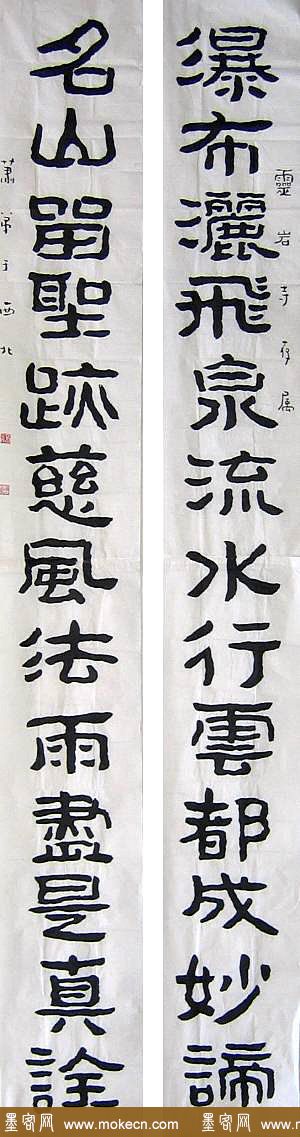 靈岩寺
瀑布灑飛泉流水行雲都成妙諦
名山留聖跡慈風法雨盡是真詮
于西北
墨客网 www.mokecn.com 墨客网 www.